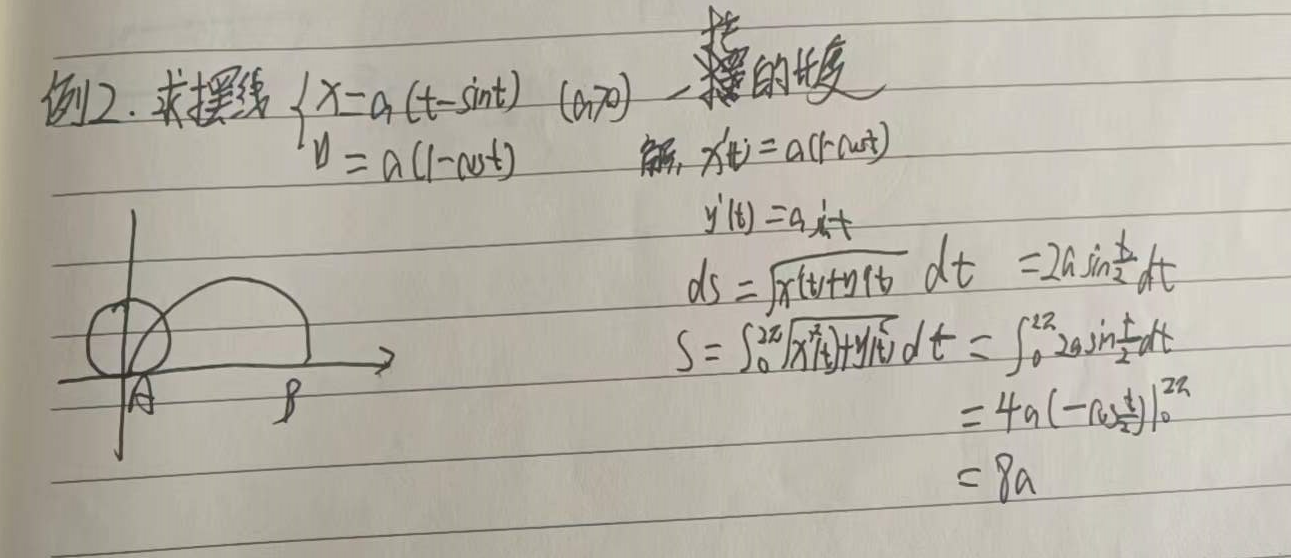 例2. 求摆线 { x = a(t-sint) (a>0) 一拱的长度
y = a(1-cost)
解, x'(t) = a(1-cost)
y'(t) = a sint
ds = √x'(t)+y'(t) dt = 2a sin t/2 dt
S = ∫₀^2π √x'²(t)+y'(t)² dt = ∫₀^2π 2a sin t/2 dt
= 4a(-cos t/2)|₀^2π
= 8a
A B